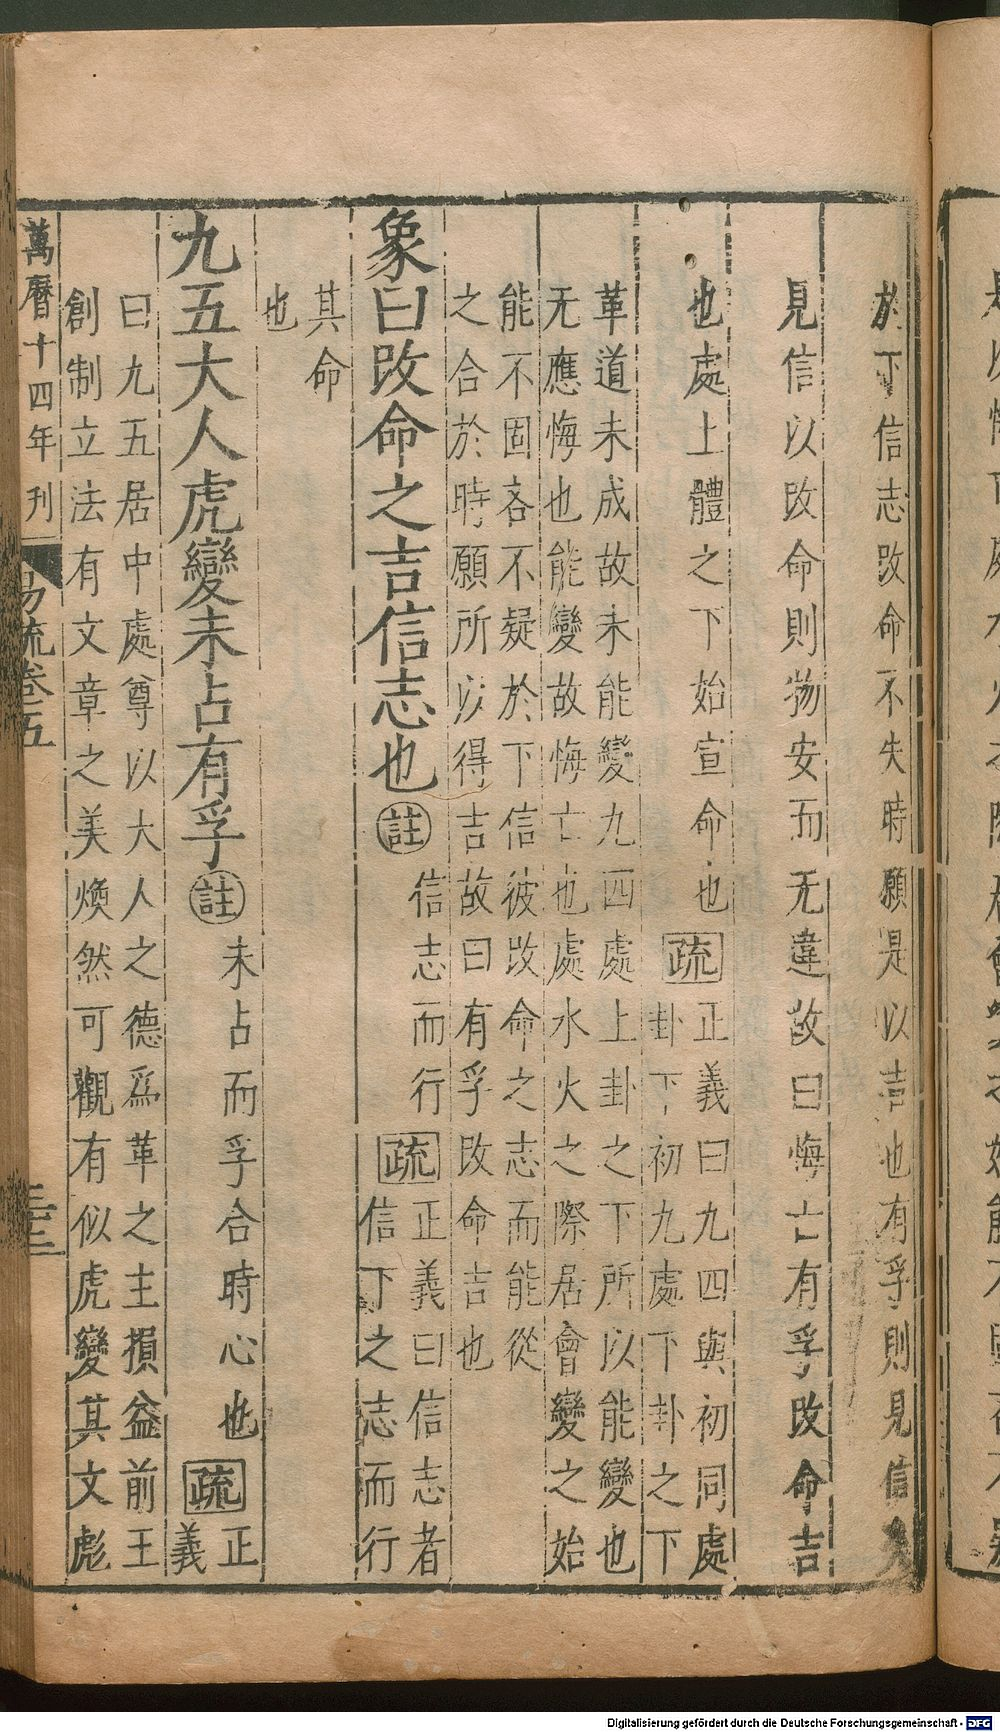 於下信志改命不失時願是以吉也有孚則見信矣
見信以改命則物安而无違故曰悔亡有孚改命吉
也處上體之下始宣命也 疏 正義曰九四與初同處
卦下初九處下卦之下
革道未成故未能變九四處上卦之下所以能變也
无應悔也能變故悔亡也處水火之際居會變之始
能不固吝不疑於下信彼改命之志而能從
之合於時願所以得吉故曰有孚改命吉也
象曰改命之吉信志也 註 信志而行 疏 正義曰信志者
信下之志而行
其命
也
九五大人虎變未占有孚 註 未占而孚合時心也 疏 正
義
曰九五居中處尊以大人之德爲革之主損益前王
創制立法有文章之美煥然可觀有似虎變其文彪
萬曆十四年刊 易疏卷五
Digitalisierung gefördert durch die Deutsche Forschungsgemeinschaft - DFG